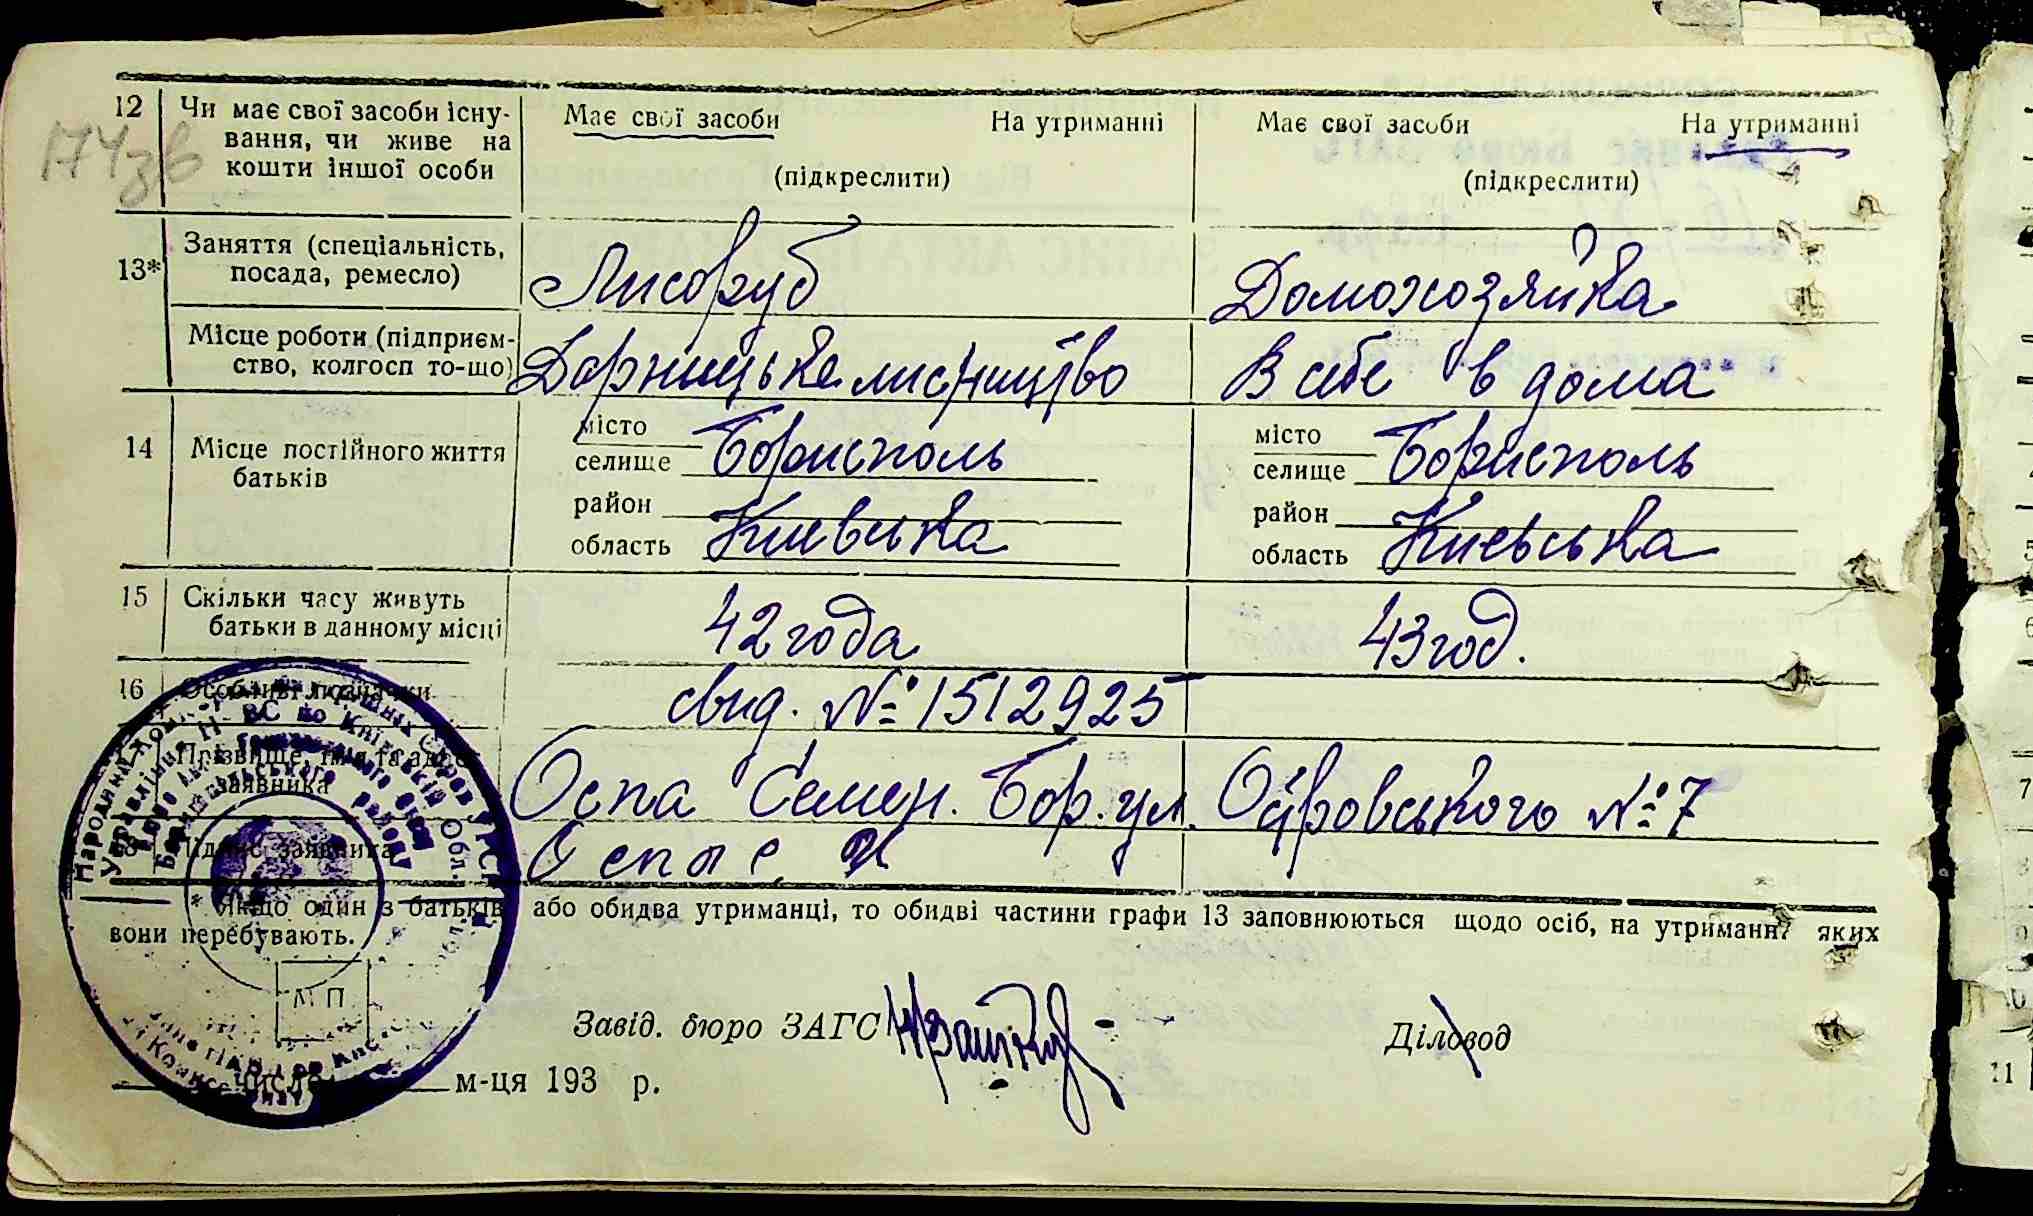 174зв
12 Чи має свої засоби існу- Має свої засоби На утриманні Має свої засоби На утриманні
вання, чи живе на
кошти іншої особи (підкреслити) (підкреслити)
Заняття (спеціальність,
13* посада, ремесло) Лисоруб Домохозяйка
Місце роботи (підприєм-
ство, колгосп то-що) Дарницьке лисництво В себе в дома
14 Місце постійного життя місто місто
батьків селище Борисполь селище Борисполь
район район
область Киевська область Киевська
15 Скільки часу живуть
батьки в данному місці 42 года 43 год.
16 Особливі позначки свид. № 1512925
Прізвище, ім'я та адреса
заявника Оспа Семен. Бор. ул. Островського № 7
18 Підпис заявника Оспа С
* Якщо один з батьків або обидва утриманці, то обидві частини графи 13 заповнюються щодо осіб, на утриманні яких
вони перебувають.
М П
Завід. бюро ЗАГС Діловод
число м-ця 193 р.